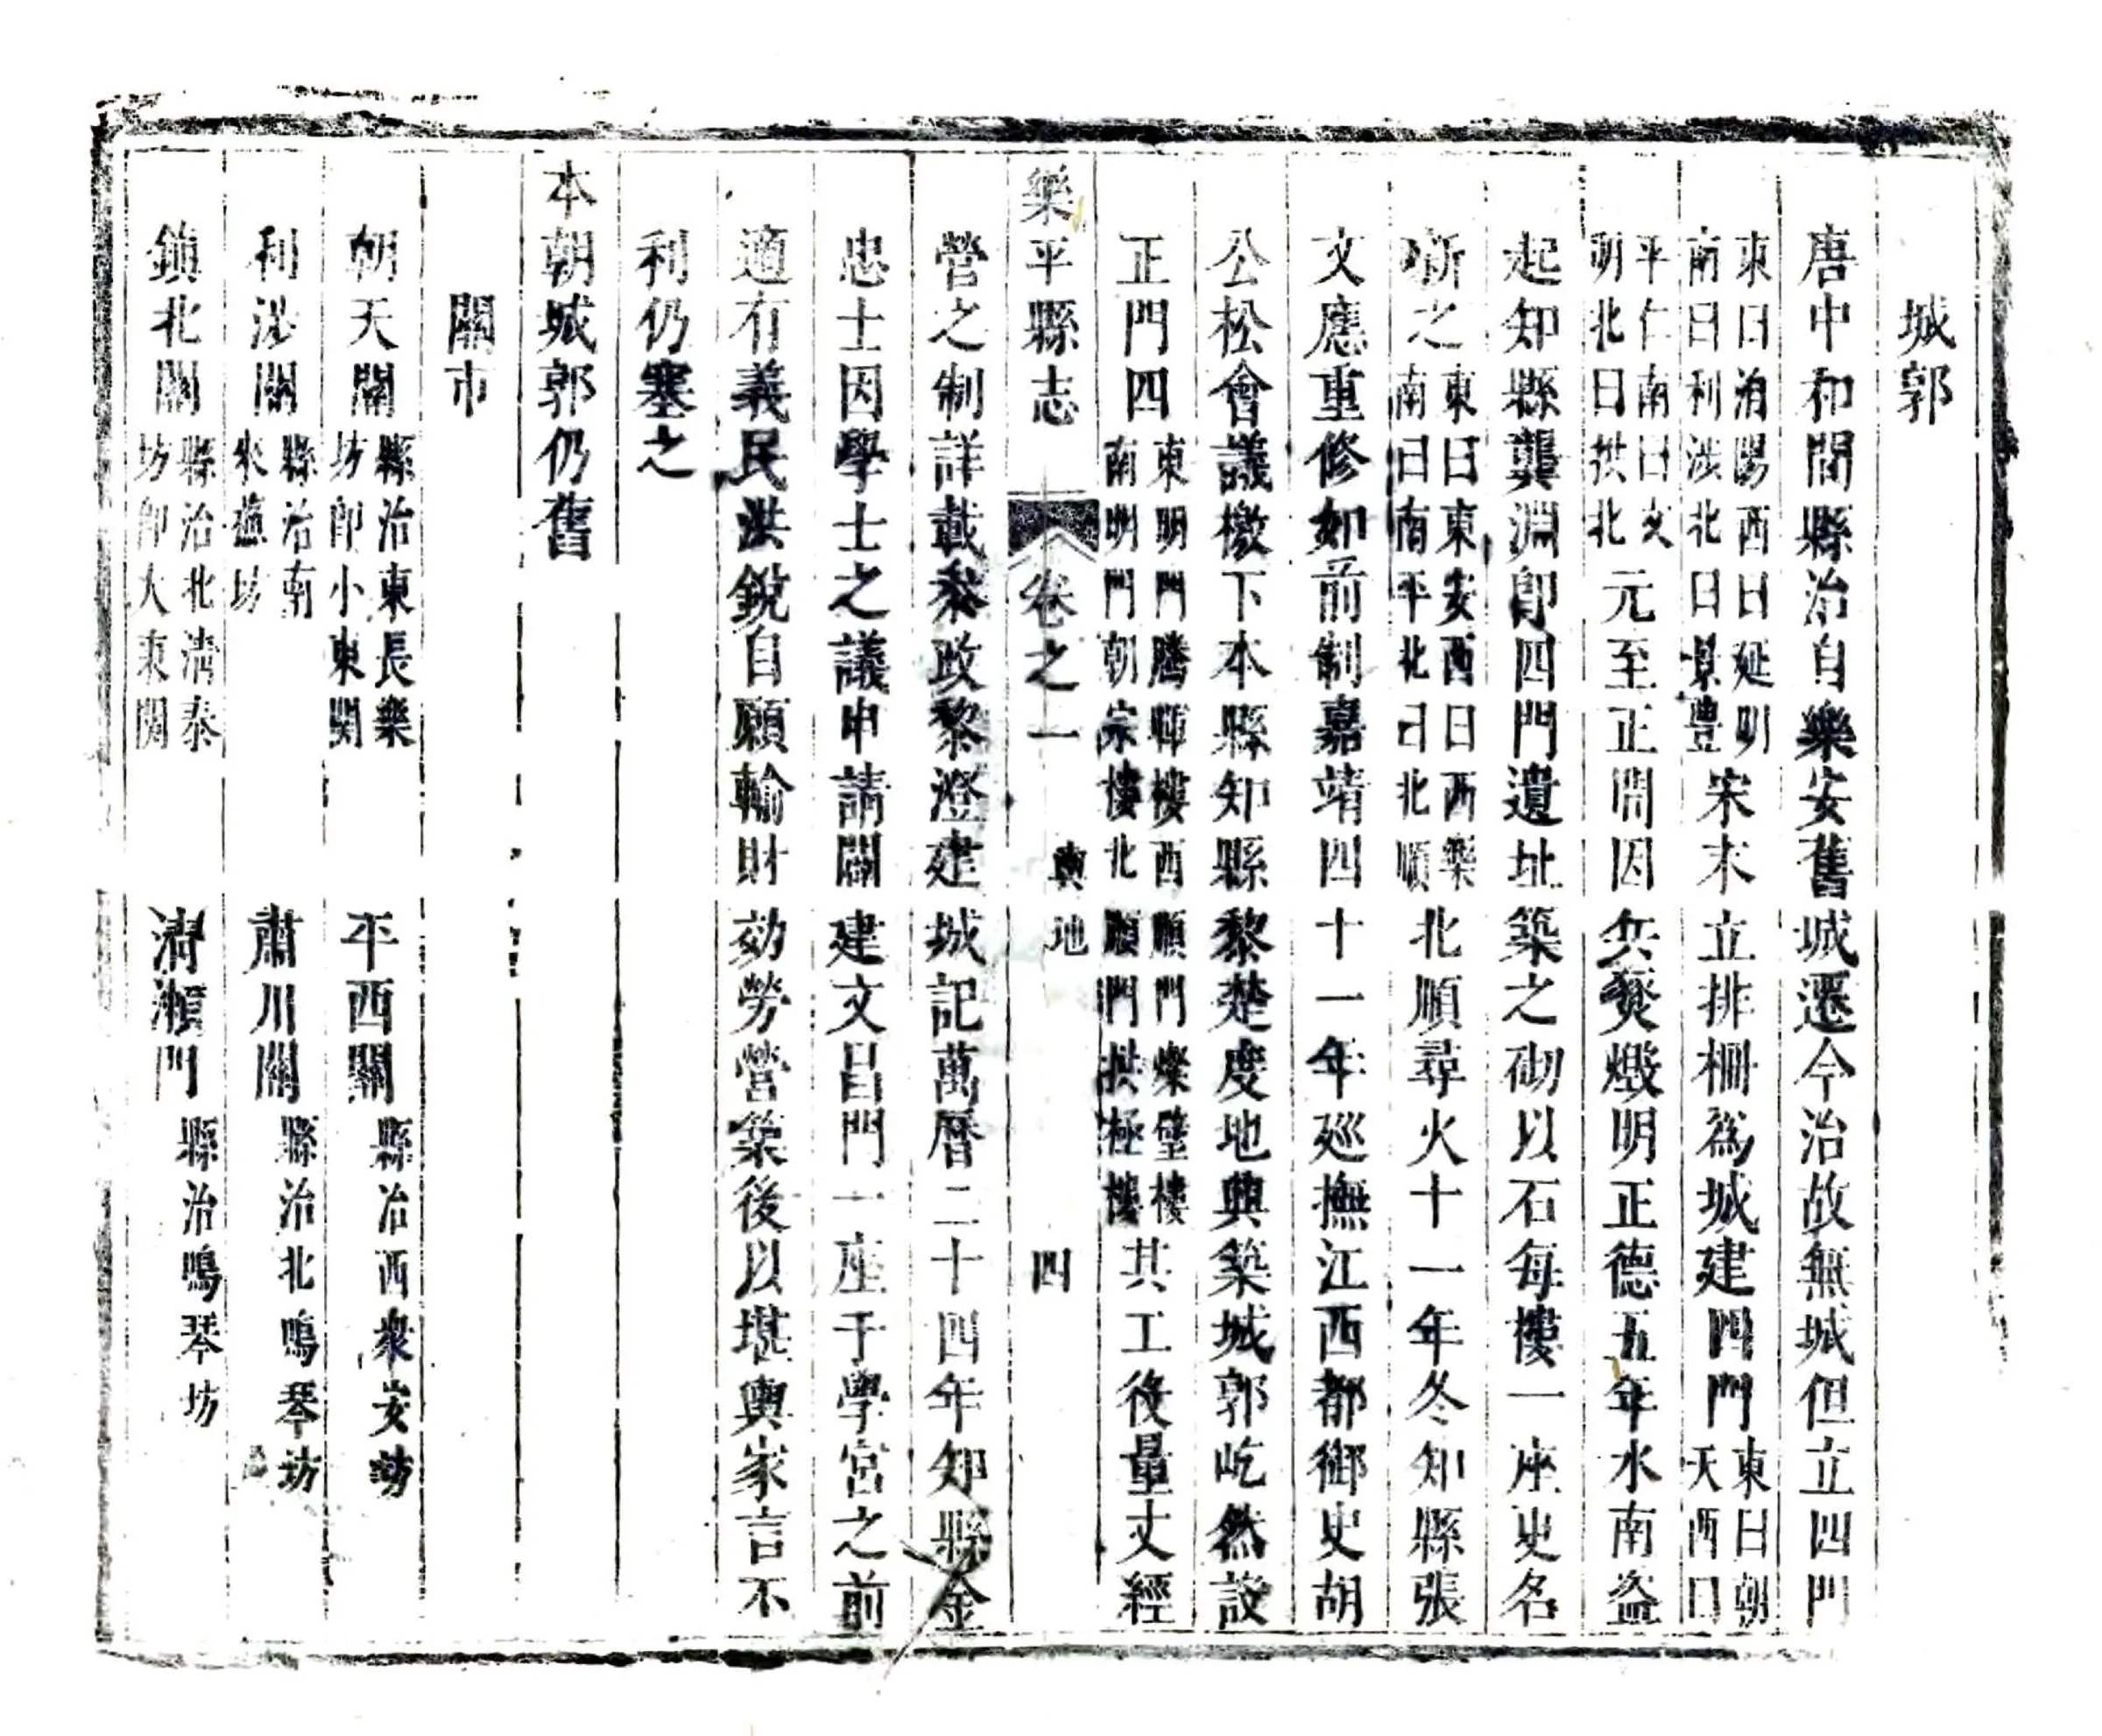 城郭
唐中和間縣治自樂安舊城遷今治故無城但立四門
東曰洎陽西曰延明南曰利涉北曰景豐宋末立排柵爲城建四門東曰朝天西曰
平仁南曰文明北曰拱北元至正間因兵燹燬明正德五年水南盜
起知縣龔淵卽四門遺址築之砌以石每樓一座更名
東曰東安西曰西樂南曰南平北曰北順北順尋火十一年冬知縣張
文應重修如前制嘉靖四十一年廵撫江西都御史胡
公松會議檄下本縣知縣黎楚度地興築城郭屹然設
正門四東明門騰暉樓西順門燦璧樓南明門朝宗樓北順門拱極樓其工役量丈經
樂平縣志 卷之一 輿地 四
營之制詳載叅政黎澄建城記萬曆二十四年知縣金
忠士因學士之議申請闢建文昌門一座于學宮之前
適有義民洪銳自願輸財効勞營築後以堪輿家言不
利仍塞之
本朝城郭仍舊
關市
朝天關縣治東長樂坊卽小東關 平西關縣治西衆安坊
利涉關縣治南來蘇坊 肅川關縣治北鳴琴坊
鎮北關縣治北清泰坊卽大東關 清瀨門縣治鳴琴坊